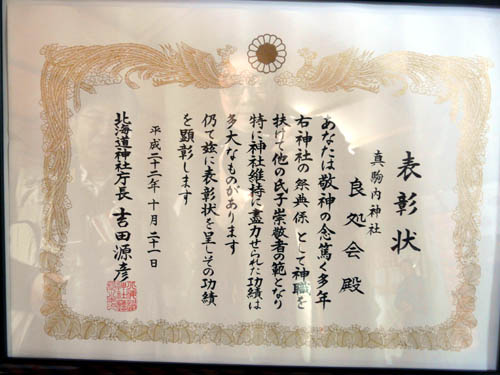 表彰状
真駒内神社
良処会殿
あなたは敬神の念篤く多年
右神社の祭典係として神職を
扶けて他の氏子崇敬者の範となり
特に神社維持に盡力せられた功績は
多大なものがあります
仍て玆に表彰状を呈しその功績
を顕彰します
平成二十二年十月二十一日
北海道神社庁長 吉田源彦